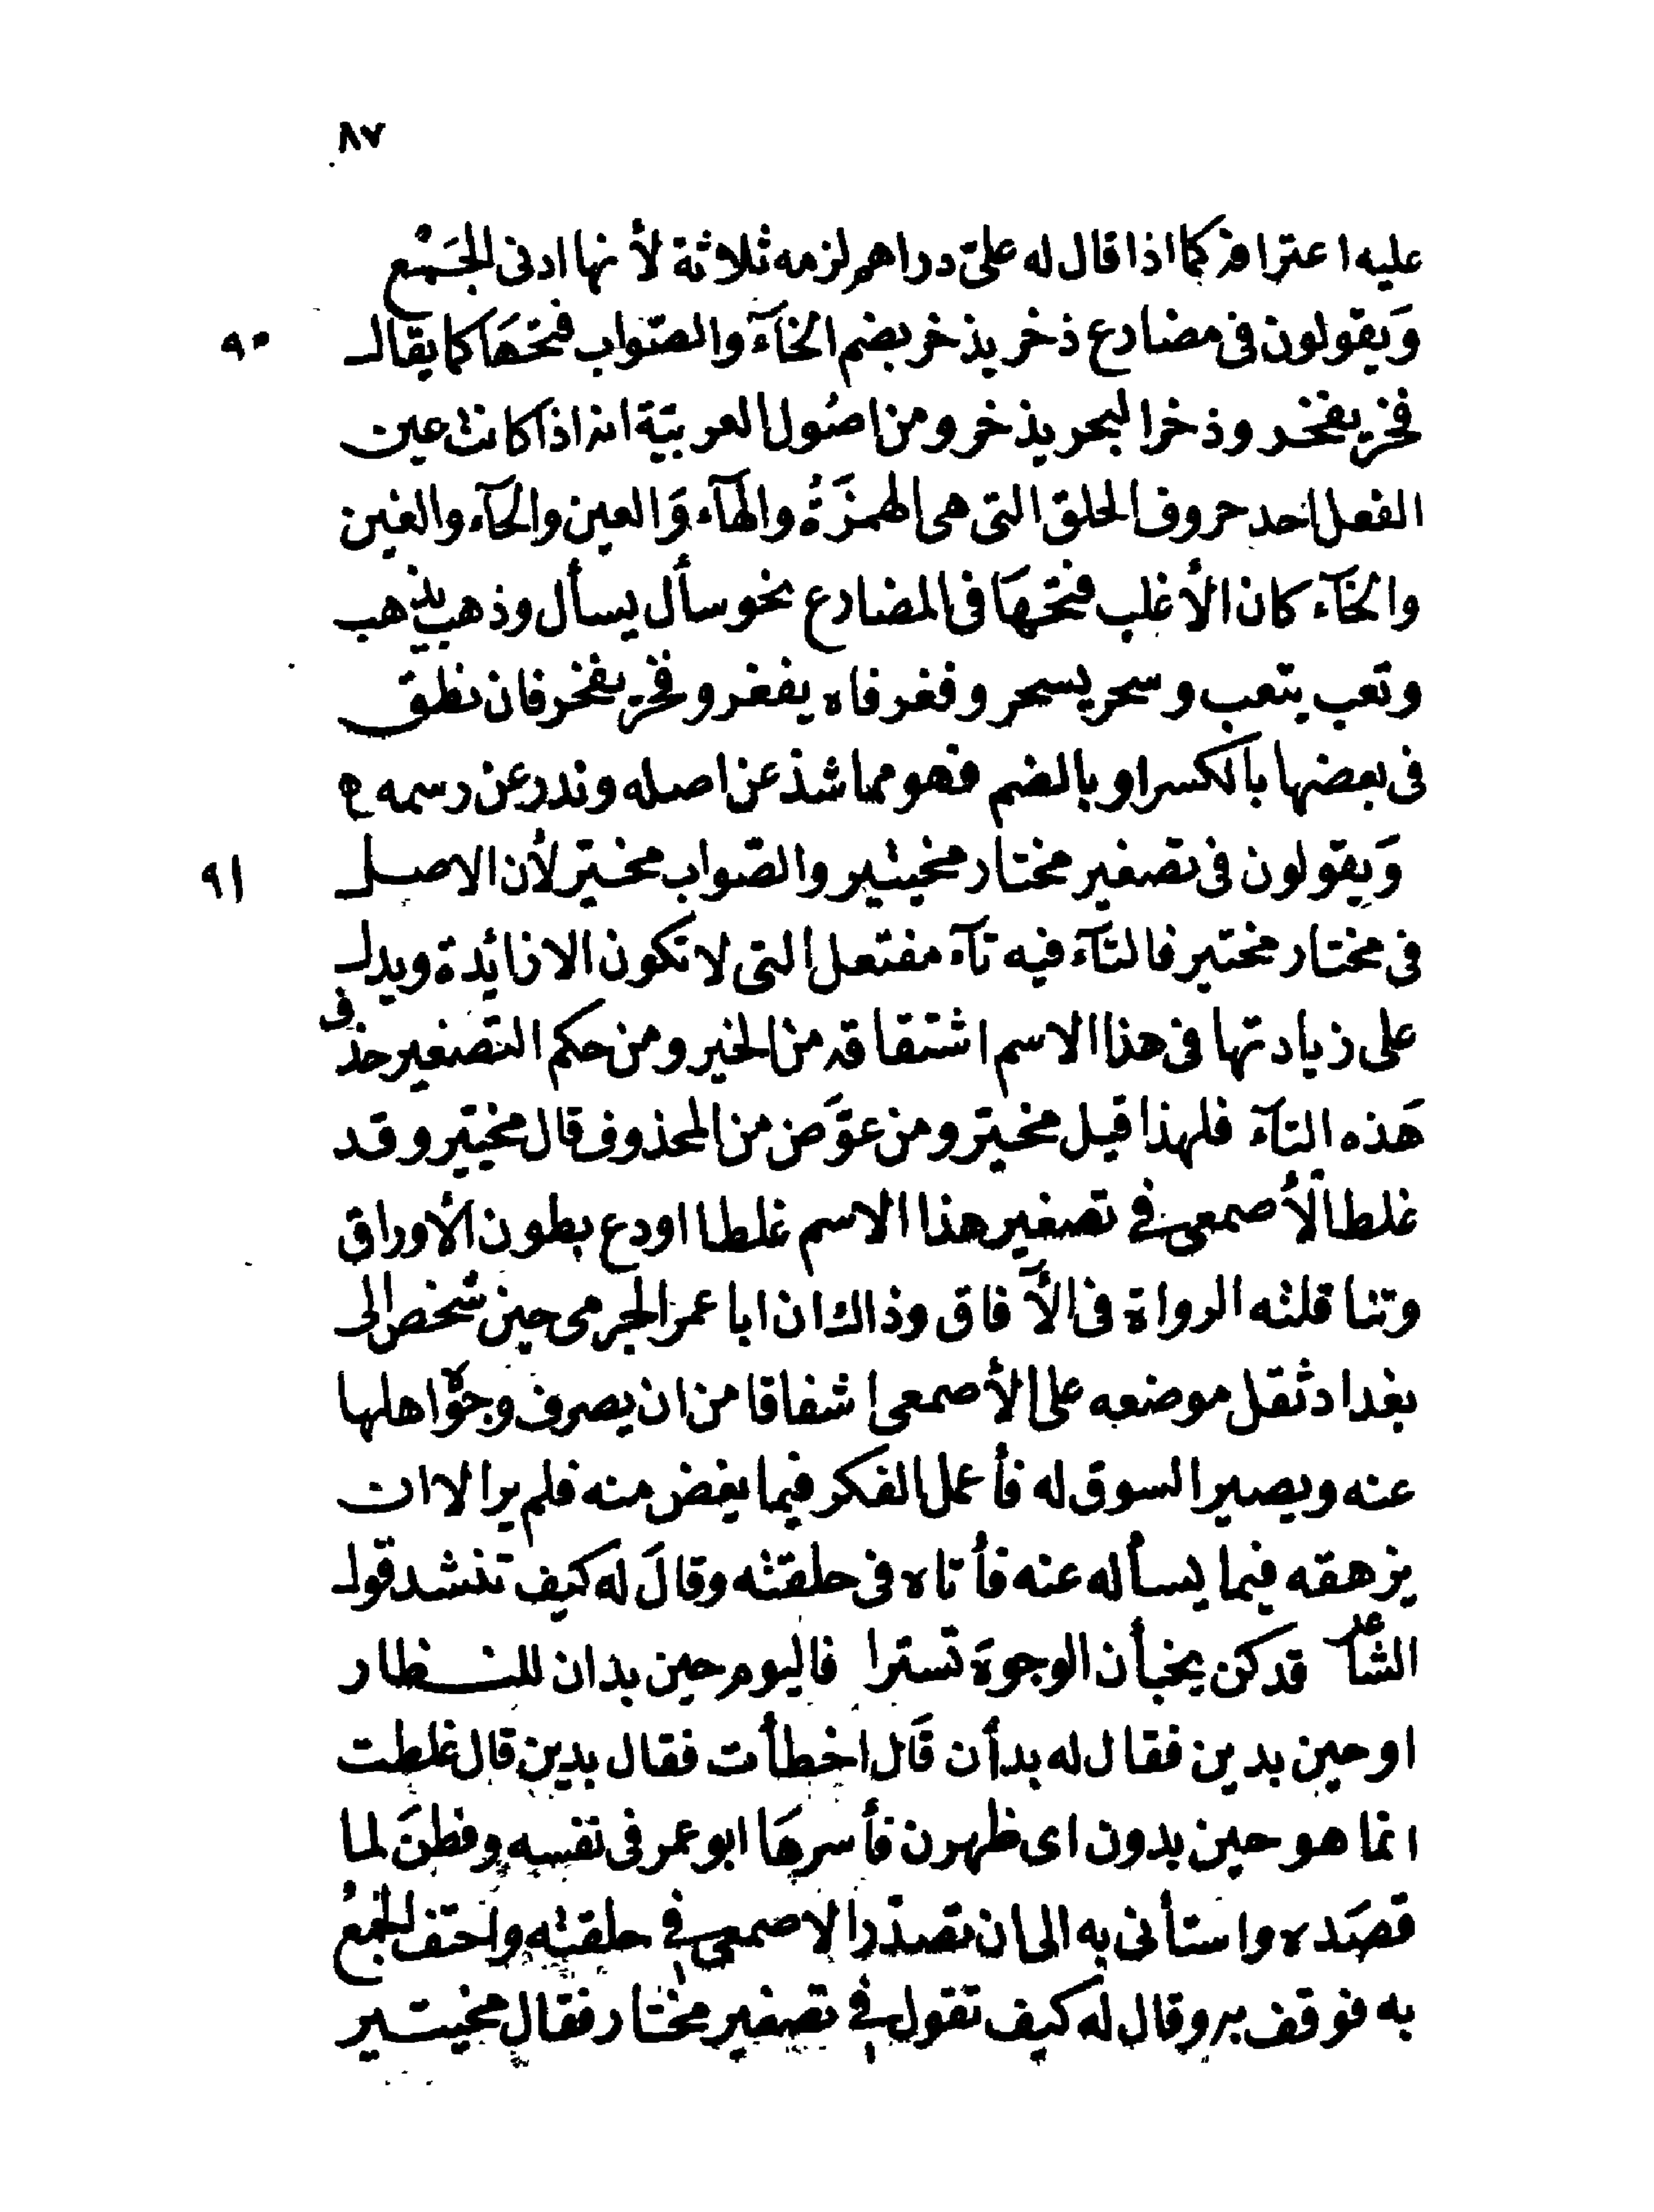 ٨٧
عليه اعترافه كما اذا قال له علىّ دراهم لزمه ثلاثة لأنها ادنى الجَمْع
وَيقولون فى مضارع ذخر يذخر بضم الخآء والصّواب فتحهَا كما يقال
٩٠
فخر يفخر وذخر البحر يذخر ومن اصُول العربيّة انه اذا كانت عين
الفعل احد حروف الحلق التى هى الهمزَةُ والهآء وَالعين والحآء والغين
والخآء كان الأغلب فتحهَا فى المضارع نحو سأل يسأل وذهب يذهب
وتعب يتعب وسحر يسحر وفغر فاه يفغر وفخر يفخر فان نطق
فى بعضها بالكسر او بالضم فهو مما شذ عن اصله وندر عن رسمه ه
وَيقولون فى تصغير مختار مخيتير والصّواب مخيّر لأن الاصل
٩١
فى مختار مختير فالتآء فيه تآء مفتعل التى لا تكون الا زائدة ويدل
على زيادتها فى هذا الاسم اشتقاقه من الخير ومن حكم التّصغير حذف
هَذه التآء فلهذا قيل مخيّر ومن عوَّض من المحذوف قال مخيّير وقد
غلط الأصمعى فى تصغير هذا الاسم غلطا اودع بطون الأوراق
وتناقلته الرواة فى الآفاق وذاك ان ابا عمر الجرمى حين شخص الى
بغداد ثقل موضعه على الأصمعى اشفاقا من ان يصرف وجوْه اهلها
عنه ويصير السوق له فأعمل الفكر فيما يغض منه فلم ير الا ان
يزهقه فيما يسأله عنه فأتاه فى حلقته وقالَ له كيف تنشد قول
الشاعر قد كن يخبأن الوجوهَ تسترا فاليوم حين بدان للنظار
او حين بدين فقال له بدأن قَال اخطأت فقال بدين قال غلطت
انما هو حين بدون اى ظهرن فأسرهَا ابو عمر فى نفسه وفطنَ لما
قصَده واستأنى به الى ان تصدّر الاصمعى فى حلقته واحتف الجمعُ
به فوقف به وقال له كيف تقول فى تصغير مختار فقال مخيتير